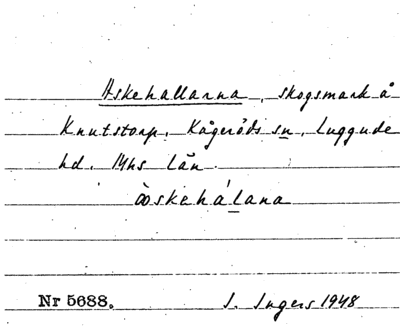 Askehallarna, skogsmark å
Knutstorp, Kågeröds sn, Luggude
hd. Mhs län.
òskehálana
Nr 5688. I. Ingers 1948